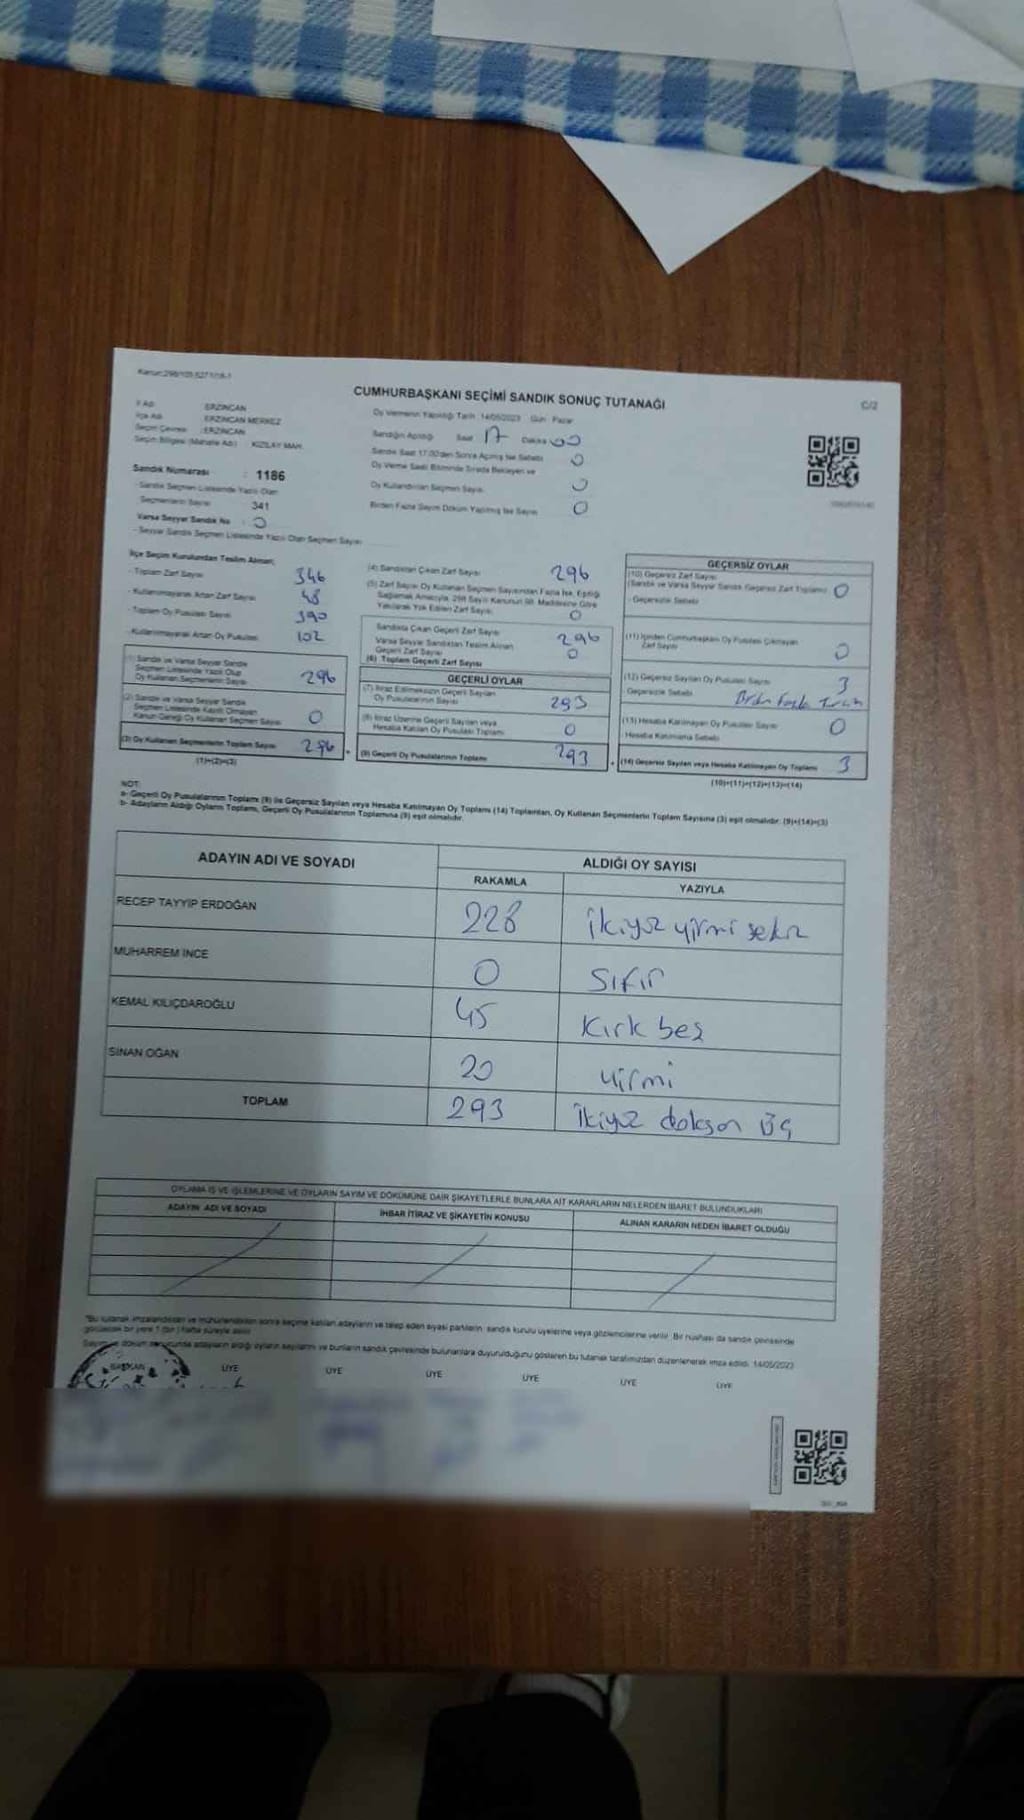 Kanun:298/105 6271/18-1
CUMHURBAŞKANI SEÇİMİ SANDIK SONUÇ TUTANAĞI
C/2
İl Adı : ERZİNCAN
İlçe Adı : ERZİNCAN MERKEZ
Seçim Çevresi : ERZİNCAN
Seçim Bölgesi (Mahalle Adı) : KIZILAY MAH.
Oy Vermenin Yapıldığı Tarih 14/05/2023 Gün Pazar
Sandığın Açıldığı Saat 17 Dakika 00
Sandık Saat 17.00'den Sonra Açılmış İse Sebebi 0
Oy Verme Saati Bitiminde Sırada Bekleyen ve
Oy Kullandırılan Seçmen Sayısı 0
Birden Fazla Sayım Döküm Yapılmış İse Sayısı 0
Sandık Numarası : 1186
- Sandık Seçmen Listesinde Yazılı Olan
Seçmenlerin Sayısı 341
Varsa Seyyar Sandık No : 0
- Seyyar Sandık Seçmen Listesinde Yazılı Olan Seçmen Sayısı
İlçe Seçim Kurulundan Teslim Alınan;
- Toplam Zarf Sayısı 346
- Kullanılmayarak Artan Zarf Sayısı 48
- Toplam Oy Pusulası Sayısı 390
- Kullanılmayarak Artan Oy Pusulası 102
(1) Sandık ve Varsa Seyyar Sandık
Seçmen Listesinde Yazılı Olup
Oy Kullanan Seçmenlerin Sayısı 296
(2) Sandık ve Varsa Seyyar Sandık
Seçmen Listesinde Kayıtlı Olmayan
Kanun Gereği Oy Kullanan Seçmen Sayısı 0
(3) Oy Kullanan Seçmenlerin Toplam Sayısı 296
(1)+(2)=(3)
(4) Sandıktan Çıkan Zarf Sayısı 296
(5) Zarf Sayısı Oy Kullanan Seçmen Sayısından Fazla İse, Eşitliği
Sağlamak Amacıyla, 298 Sayılı Kanunun 98. Maddesine Göre
Yakılarak Yok Edilen Zarf Sayısı 0
Sandıkta Çıkan Geçerli Zarf Sayısı 296
Varsa Seyyar Sandıktan Teslim Alınan
Geçerli Zarf Sayısı 0
(6) Toplam Geçerli Zarf Sayısı
GEÇERLİ OYLAR
(7) İtiraz Edilmeksizin Geçerli Sayılan
Oy Pusulalarının Sayısı 293
(8) İtiraz Üzerine Geçerli Sayılan veya
Hesaba Katılan Oy Pusulası Toplamı 0
(9) Geçerli Oy Pusulalarının Toplamı 293
GEÇERSİZ OYLAR
(10) Geçersiz Zarf Sayısı
(Sandık ve Varsa Seyyar Sandık Geçersiz Zarf Toplamı) 0
- Geçersizlik Sebebi
(11) İçinden Cumhurbaşkanı Oy Pusulası Çıkmayan
Zarf Sayısı 0
(12) Geçersiz Sayılan Oy Pusulası Sayısı 3
Geçersizlik Sebebi
(13) Hesaba Katılmayan Oy Pusulası Sayısı 0
Hesaba Katılmama Sebebi
(14) Geçersiz Sayılan veya Hesaba Katılmayan Oy Toplamı 3
(10)+(11)+(12)+(13)=(14)
NOT:
a- Geçerli Oy Pusulalarının Toplamı (9) ile Geçersiz Sayılan veya Hesaba Katılmayan Oy Toplamı (14) Toplamları, Oy Kullanan Seçmenlerin Toplam Sayısına (3) eşit olmalıdır. (9)+(14)=(3)
b- Adayların Aldığı Oyların Toplamı, Geçerli Oy Pusulalarının Toplamına (9) eşit olmalıdır.
ADAYIN ADI VE SOYADI ALDIĞI OY SAYISI
RAKAMLA YAZIYLA
RECEP TAYYİP ERDOĞAN 228 ikiyüz yirmi sekiz
MUHARREM İNCE 0 Sıfır
KEMAL KILIÇDAROĞLU 45 Kırk beş
SİNAN OĞAN 20 yirmi
TOPLAM 293 ikiyüz doksan üç
OYLAMA İŞ VE İŞLEMLERİNE VE OYLARIN SAYIM VE DÖKÜMÜNE DAİR ŞİKAYETLERLE BUNLARA AİT KARARLARIN NELERDEN İBARET BULUNDUKLARI
ADAYIN ADI VE SOYADI İHBAR İTİRAZ VE ŞİKAYETİN KONUSU ALINAN KARARIN NEDEN İBARET OLDUĞU
*Bu tutanak imzalandıktan ve mühürlendikten sonra seçime katılan adayların ve talep eden siyasi partilerin sandık kurulu üyelerine veya gözlemcilerine verilir. Bir nüshası da sandık çevresinde
görülecek bir yere 1 (bir) hafta süreyle asılır.
adayların aldığı oyların sayılarını ve bunların sandık çevresinde bulunanlara duyurulduğunu gösteren bu tutanak tarafımızdan düzenlenerek imza edildi. 14/05/2023
BAŞKAN ÜYE ÜYE ÜYE ÜYE ÜYE ÜYE